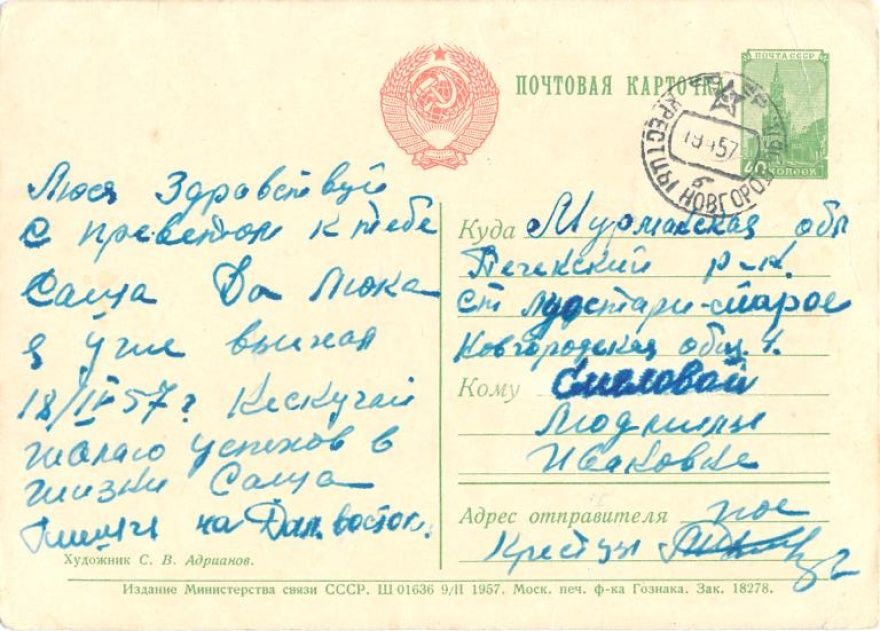 ПОЧТОВАЯ КАРТОЧКА
ПОЧТА СССР
КОПЕЕК
КРЕСТЦЫ НОВГОРОД
19 4 57
б
Люся Здравствуй
с приветом к тебе
Саша Да Люка
я уже выехал
18/IV 57 г Нескучай
желаю успехов в
жизни Саша
на Дал. восток.
Художник С. В. Адрианов.
Куда Мурманская обл
Печенкский р-н.
ст Луостари-старое
Новгородская общ. 1.
Кому Смеловой
Людмилы
Ивановне
Адрес отправителя пос
Крестцы
Издание Министерства связи СССР. Ш 01636 9/II 1957. Моск. печ. ф-ка Гознака. Зак. 18278.